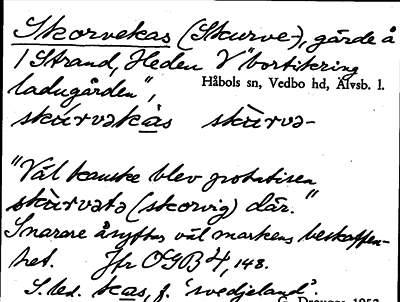 Skorvekas (Skurve-), gärde å
1 Strand, Heden V "bortikring
ladugården",
Håbols sn, Vedbo hd, Älvsb. l.
skùrvəkås skùrvə-
"Väl kanske blev potatisen
skùrvətə (skorvig) där."
Snarare åsyftas väl markens beskaffen-
het. Jfr OGB 4, 148.
S. led. kas, f. 'svedjeland'.